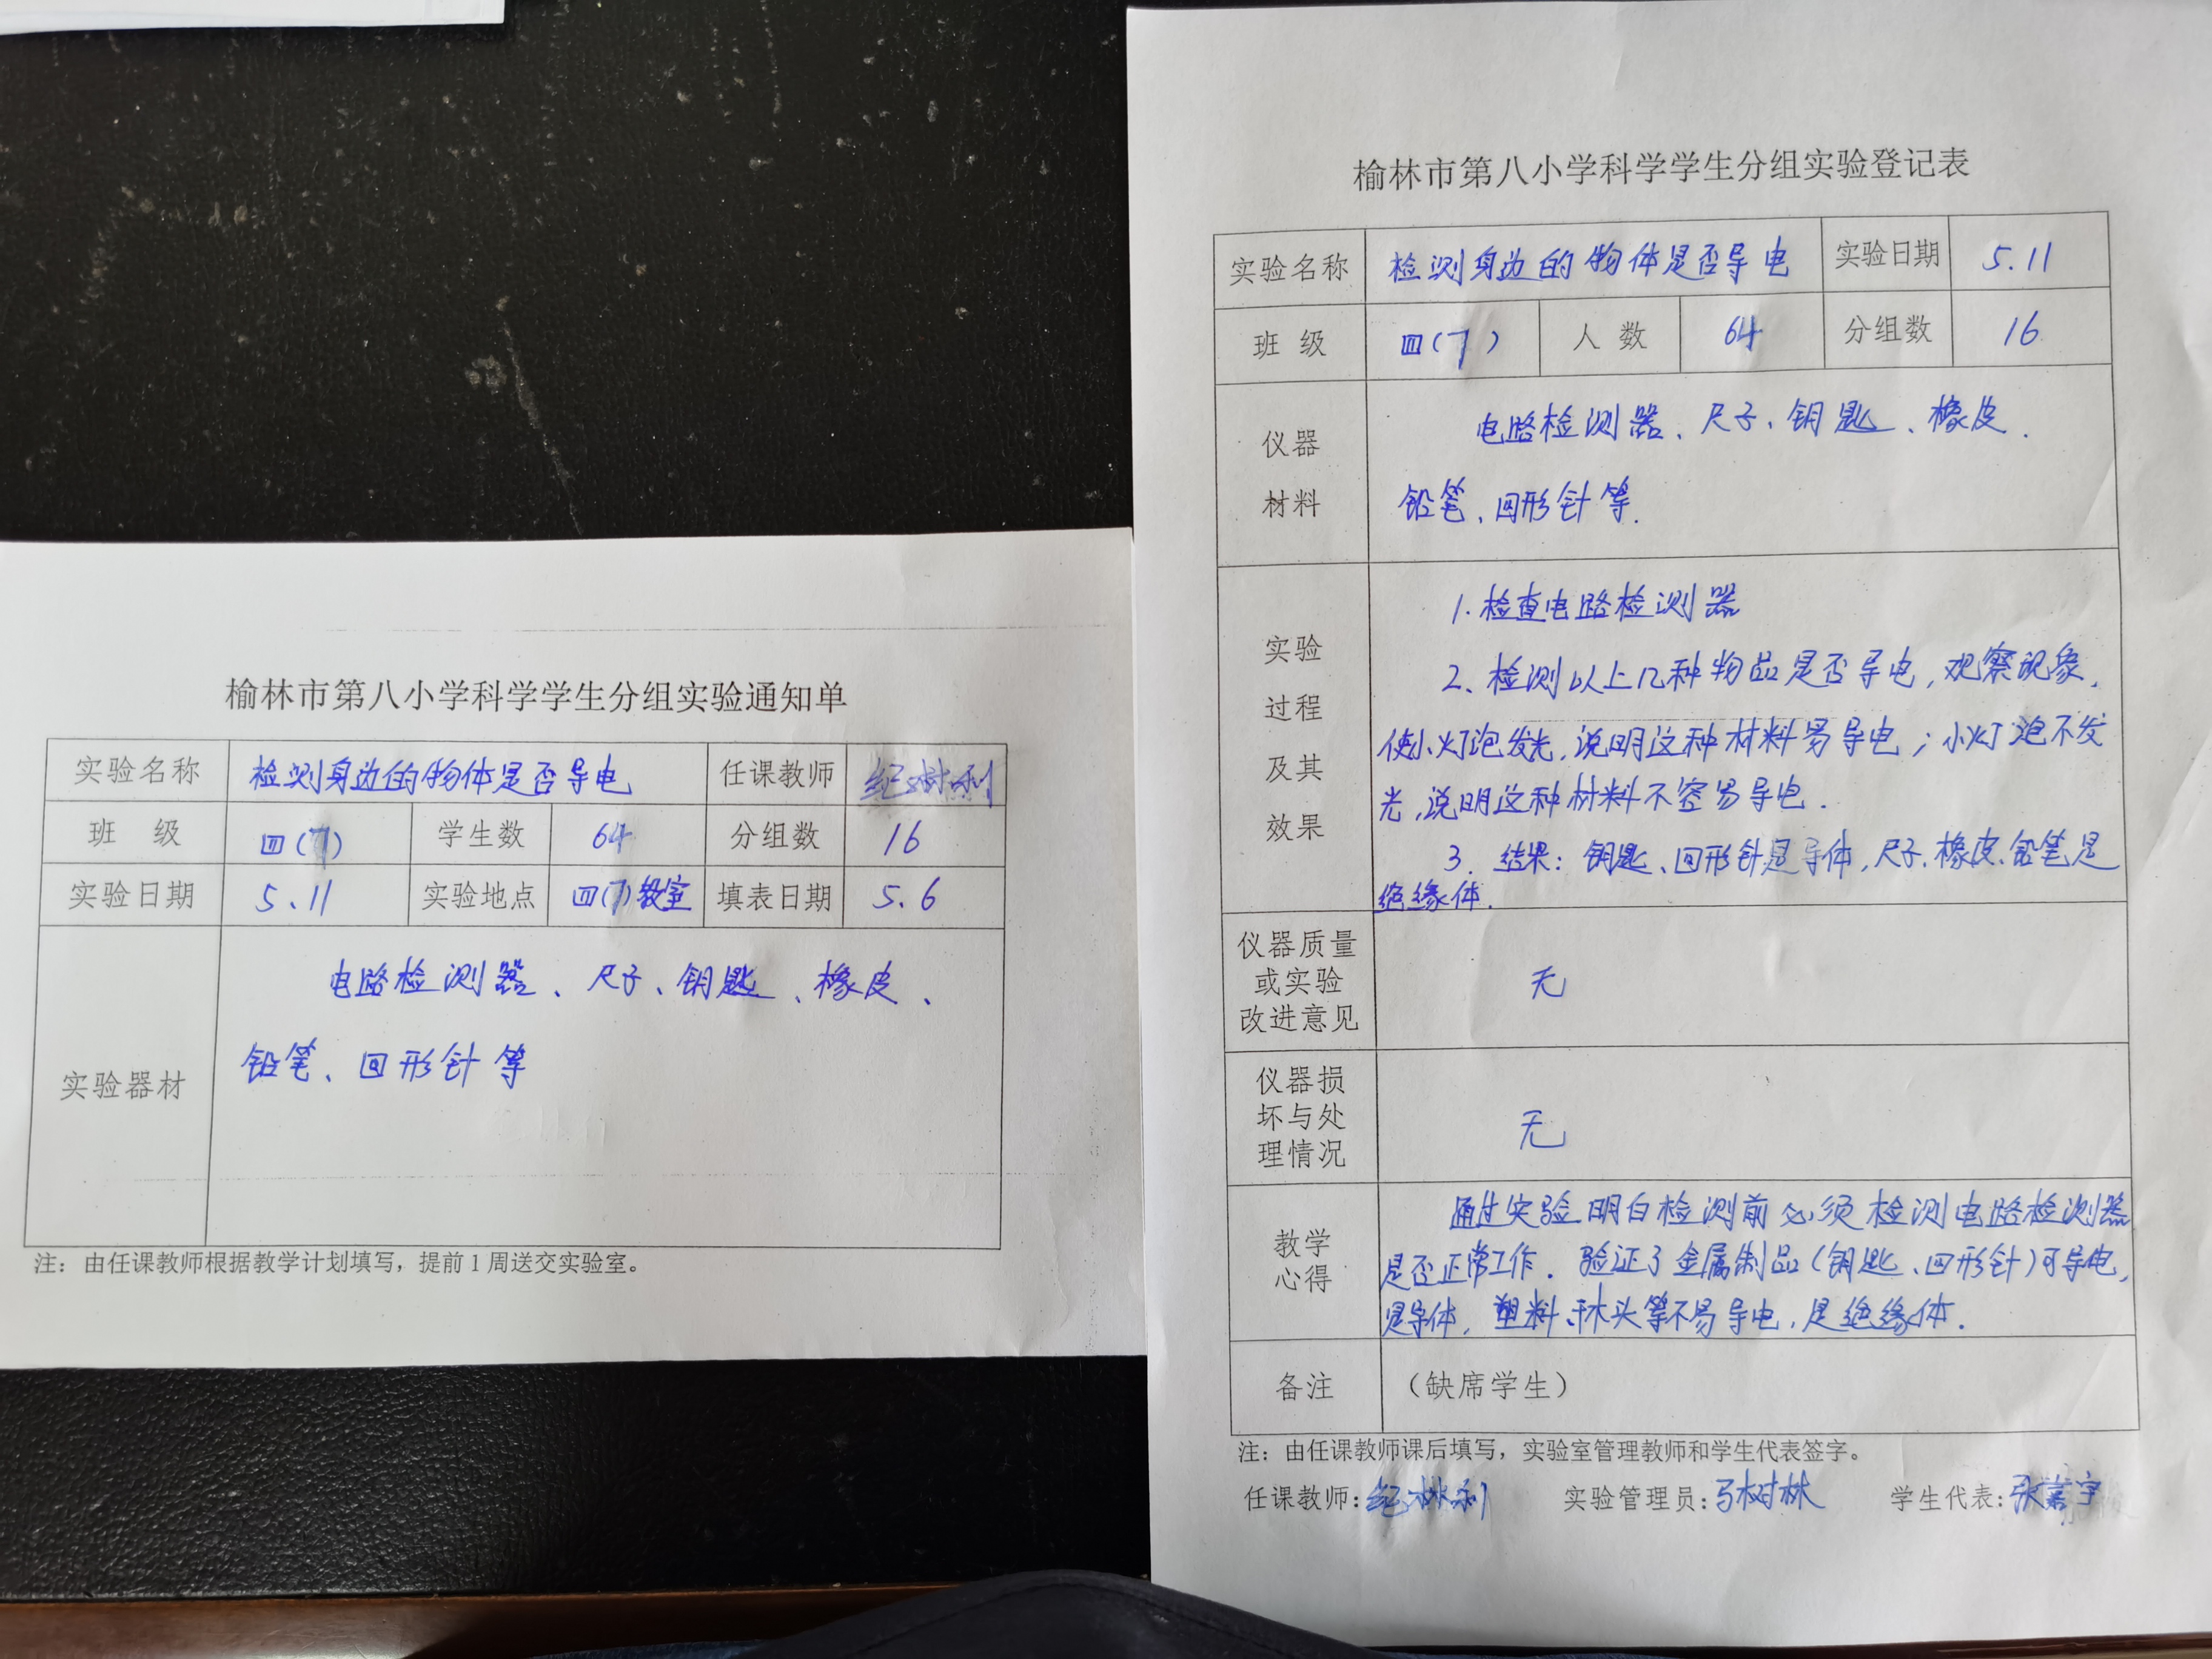 榆林市第八小学科学学生分组实验通知单
实验名称 检测身边的物体是否导电 任课教师 纪树利
班 级 四(7) 学生数 64 分组数 16
实验日期 5.11 实验地点 四(7)教室 填表日期 5.6
实验器材 电路检测器、尺子、钥匙、橡皮、
铅笔、回形针等
注：由任课教师根据教学计划填写，提前1周送交实验室。
榆林市第八小学科学学生分组实验登记表
实验名称 检测身边的物体是否导电 实验日期 5.11
班 级 四(7) 人 数 64 分组数 16
仪器
材料
电路检测器、尺子、钥匙、橡皮.
铅笔、回形针等.
实验
过程
及其
效果
1.检查电路检测器
2、检测以上几种物品是否导电,观察现象,
使小灯泡发光,说明这种材料易导电；小灯泡不发
光,说明这种材料不容易导电.
3. 结果：钥匙、回形针是导体,尺子.橡皮.铅笔是
绝缘体.
仪器质量
或实验
改进意见
无
仪器损
坏与处
理情况
无
教学
心得
通过实验明白检测前必须检测电路检测器
是否正常工作. 验证了金属制品(钥匙、回形针)可导电,
是导体, 塑料、木头等不易导电,是绝缘体.
备注 （缺席学生）
注：由任课教师课后填写，实验室管理教师和学生代表签字。
任课教师: 纪树利 实验管理员: 马树林 学生代表: 张嘉宇